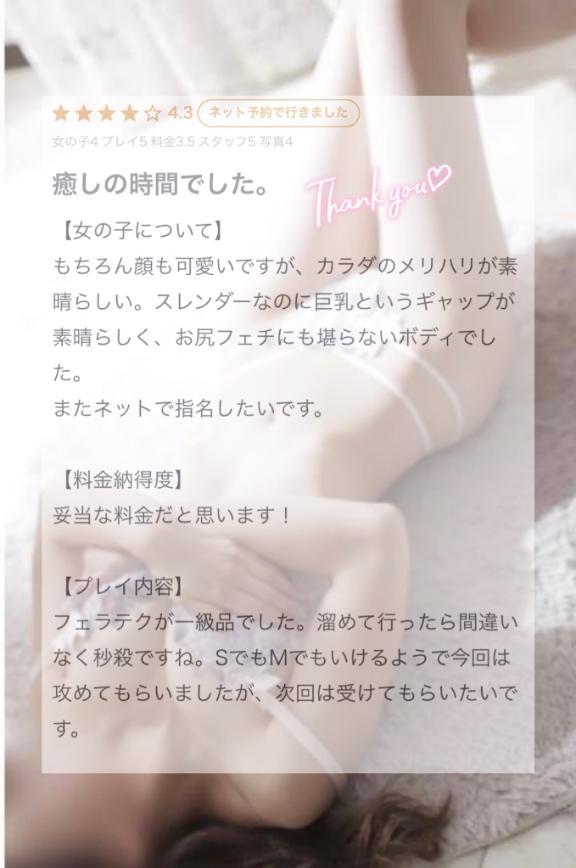 ★★★★☆ 4.3 ネット予約で行きました
女の子4 プレイ5 料金3.5 スタッフ5 写真4
癒しの時間でした。
Thank you♡
【女の子について】
もちろん顔も可愛いですが、カラダのメリハリが素
晴らしい。スレンダーなのに巨乳というギャップが
素晴らしく、お尻フェチにも堪らないボディでし
た。
またネットで指名したいです。
【料金納得度】
妥当な料金だと思います！
【プレイ内容】
フェラテクが一級品でした。溜めて行ったら間違い
なく秒殺ですね。SでもMでもいけるようで今回は
攻めてもらいましたが、次回は受けてもらいたいで
す。